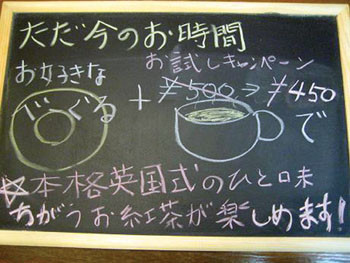 ただ今のお時間
お試しキャンペーン
お好きな
べーぐる + ¥500→¥450
で
☆本格英国式のひと味
ちがうお紅茶が楽しめます!